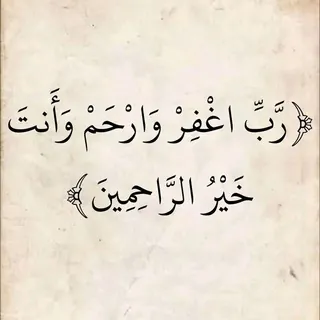 ﴿رَّبِّ اغْفِرْ وَارْحَمْ وَأَنتَ
خَيْرُ الرَّاحِمِينَ﴾